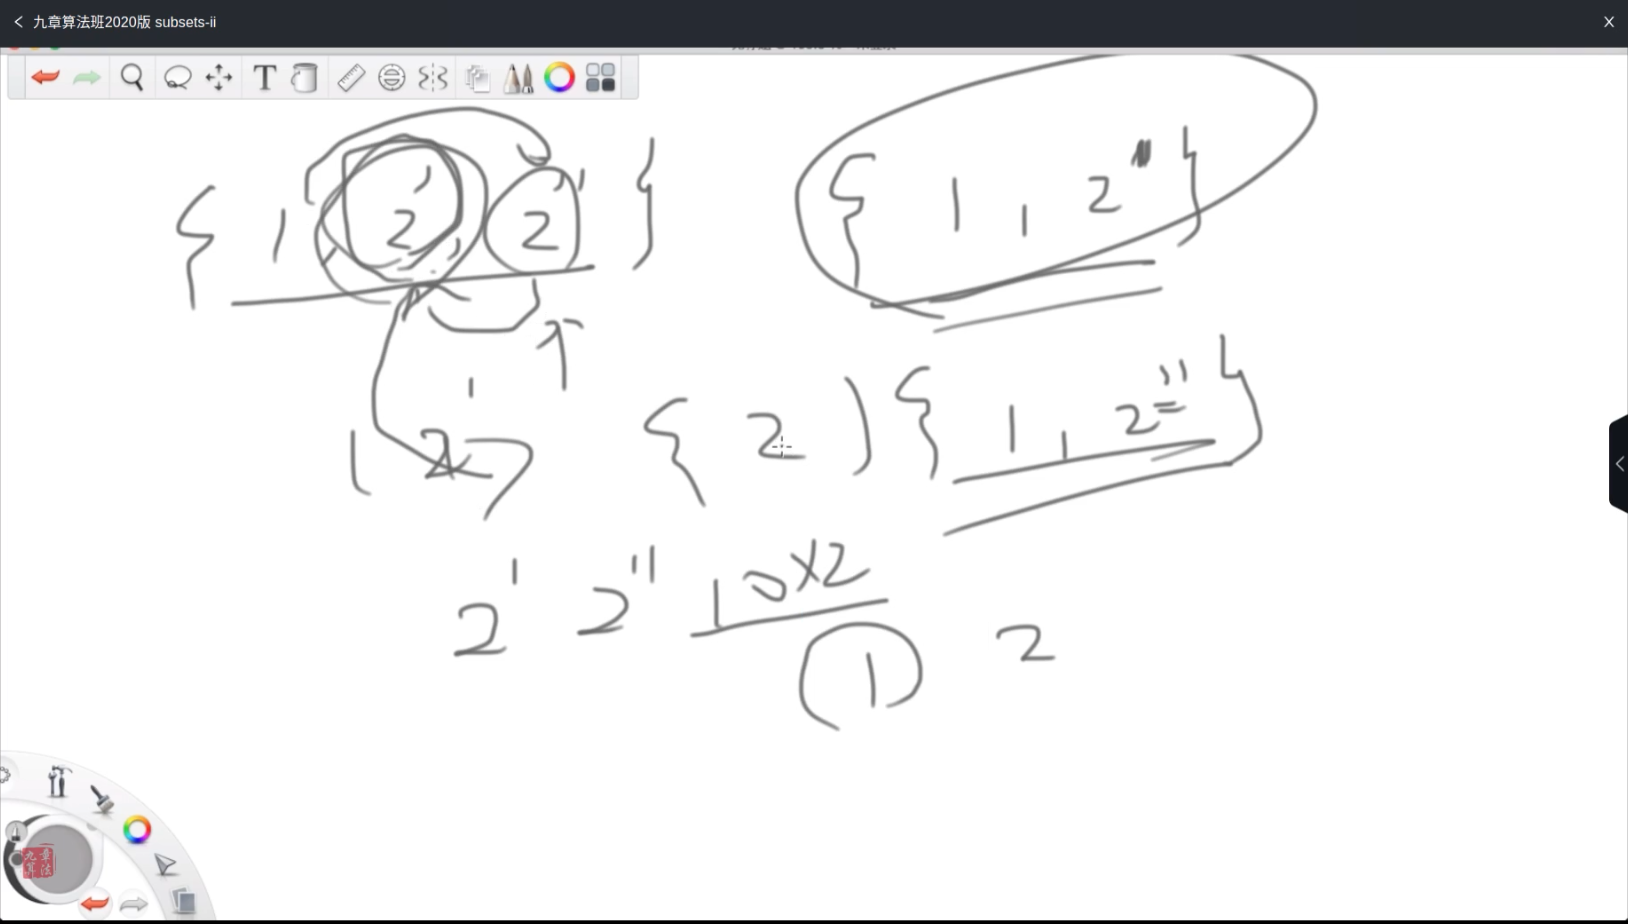 九章算法班2020版 subsets-ii
{ 1, 2', 2'' }
{ 1, 2" }
1 2'
{ 2 }
{ 1, 2'' }
2' 2'' 10×2
1 2
九章算法